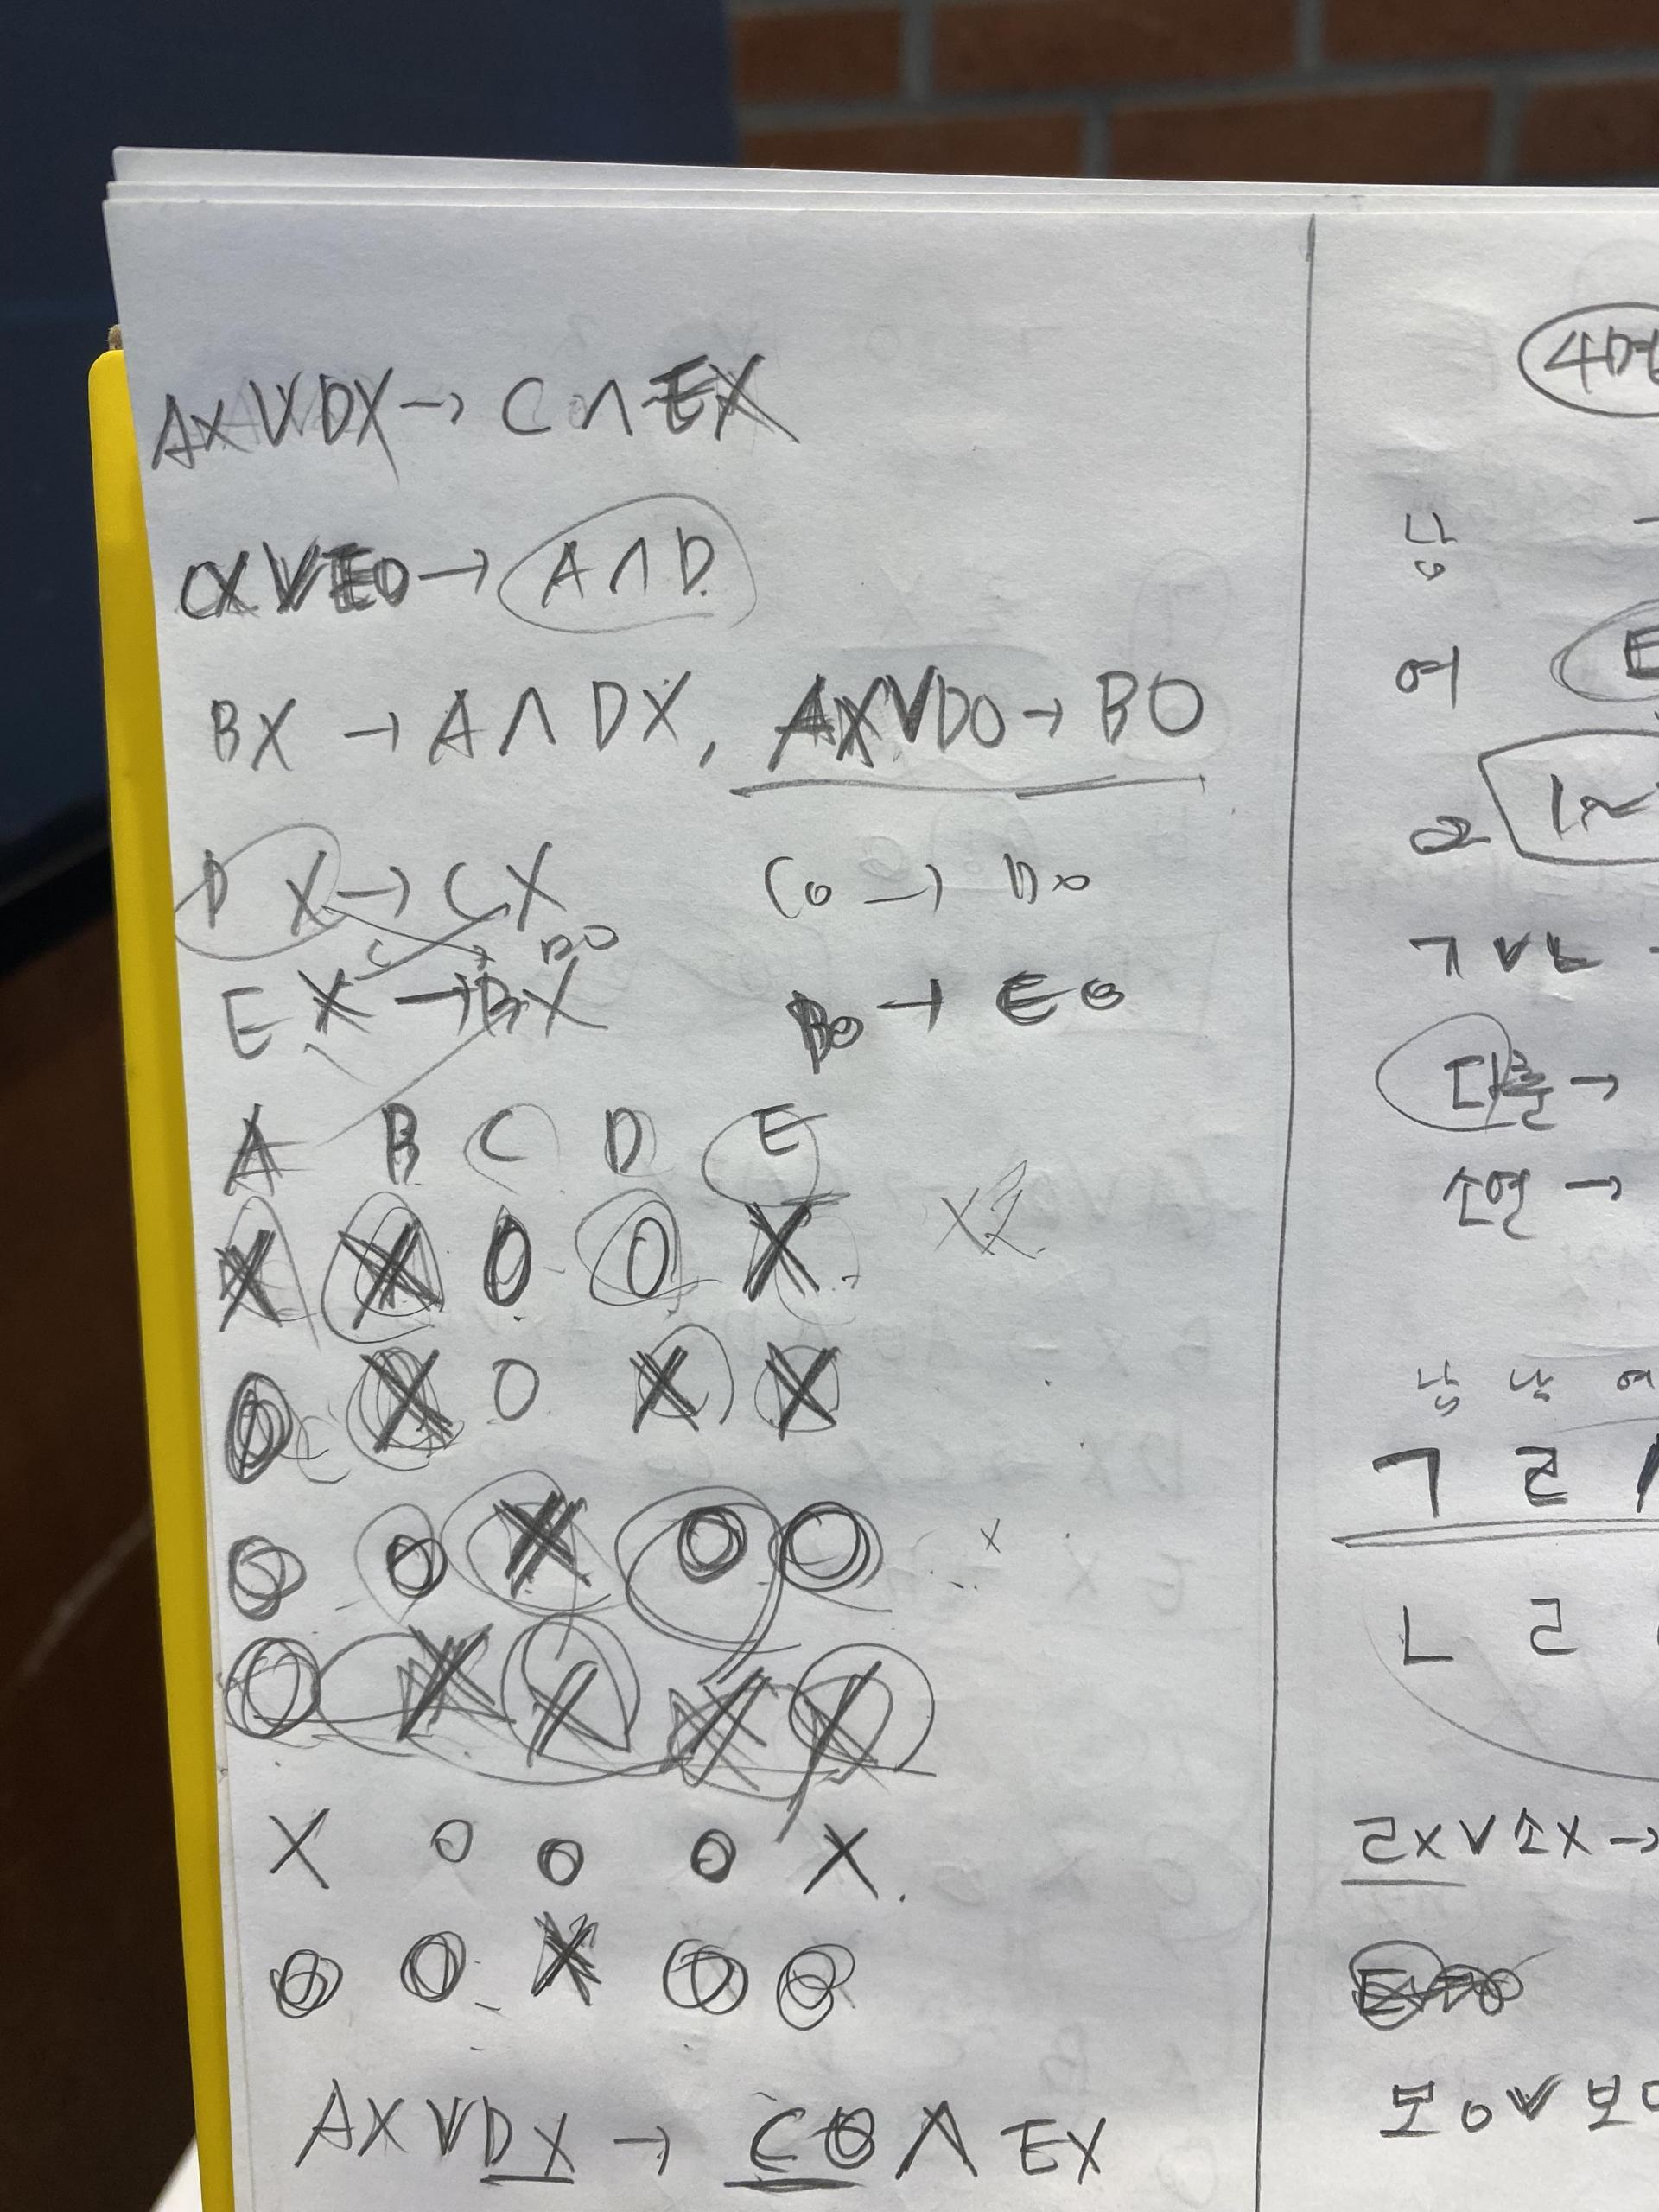 AX V DX → C ∧ EX
CX V EO → A ∧ D
BX → A ∧ DX, AX V DO → BO
D X → C X
CO → DO
DO
E X → B X
BO → EO
A B C D E
X X O O X X2
O X O X X
O O X O O X
O X X X X
X O O O X
O O X O O
AX V DX → CO ∧ EX
4명
남
여 E
오 1~
ㄱ V ㄴ
다훈 →
소연 →
남 남 여
ㄱ ㄹ
ㄴ ㄹ
ㄹX V 소X →